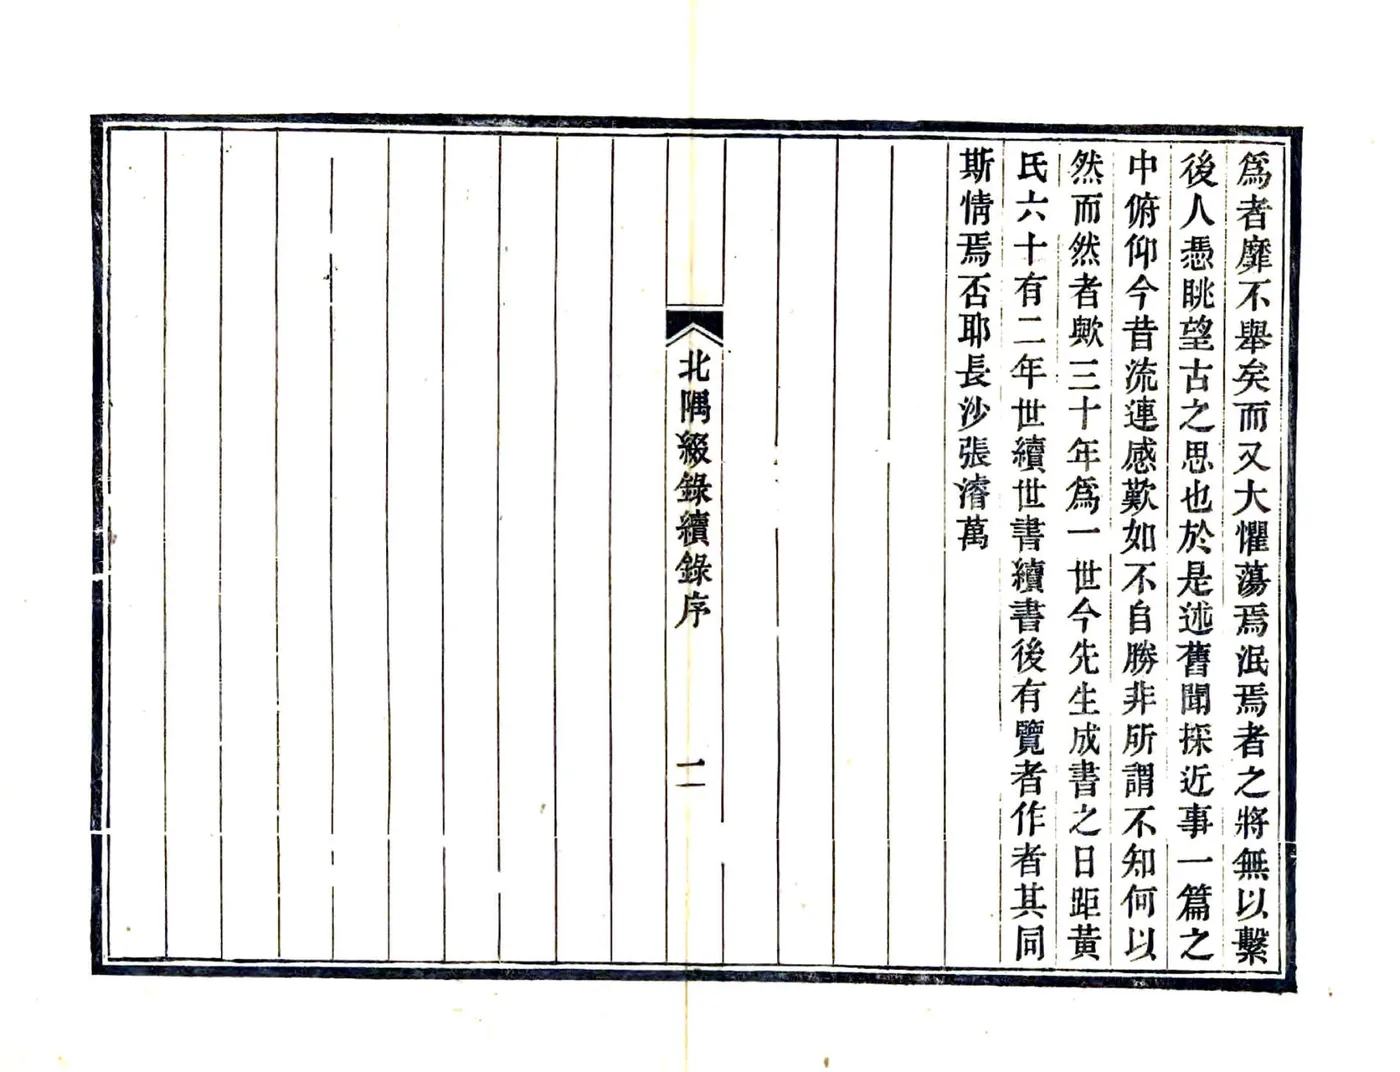 爲者靡不舉矣而又大懼蕩焉泯焉者之將無以繫
後人憑眺望古之思也於是述舊聞採近事一篇之
中俯仰今昔流連感歎如不自勝非所謂不知何以
然而然者歟三十年爲一世今先生成書之日距黃
氏六十有二年世續世書續書後有覽者作者其同
斯情焉否耶長沙張濬萬
北隅綴錄續錄序
二